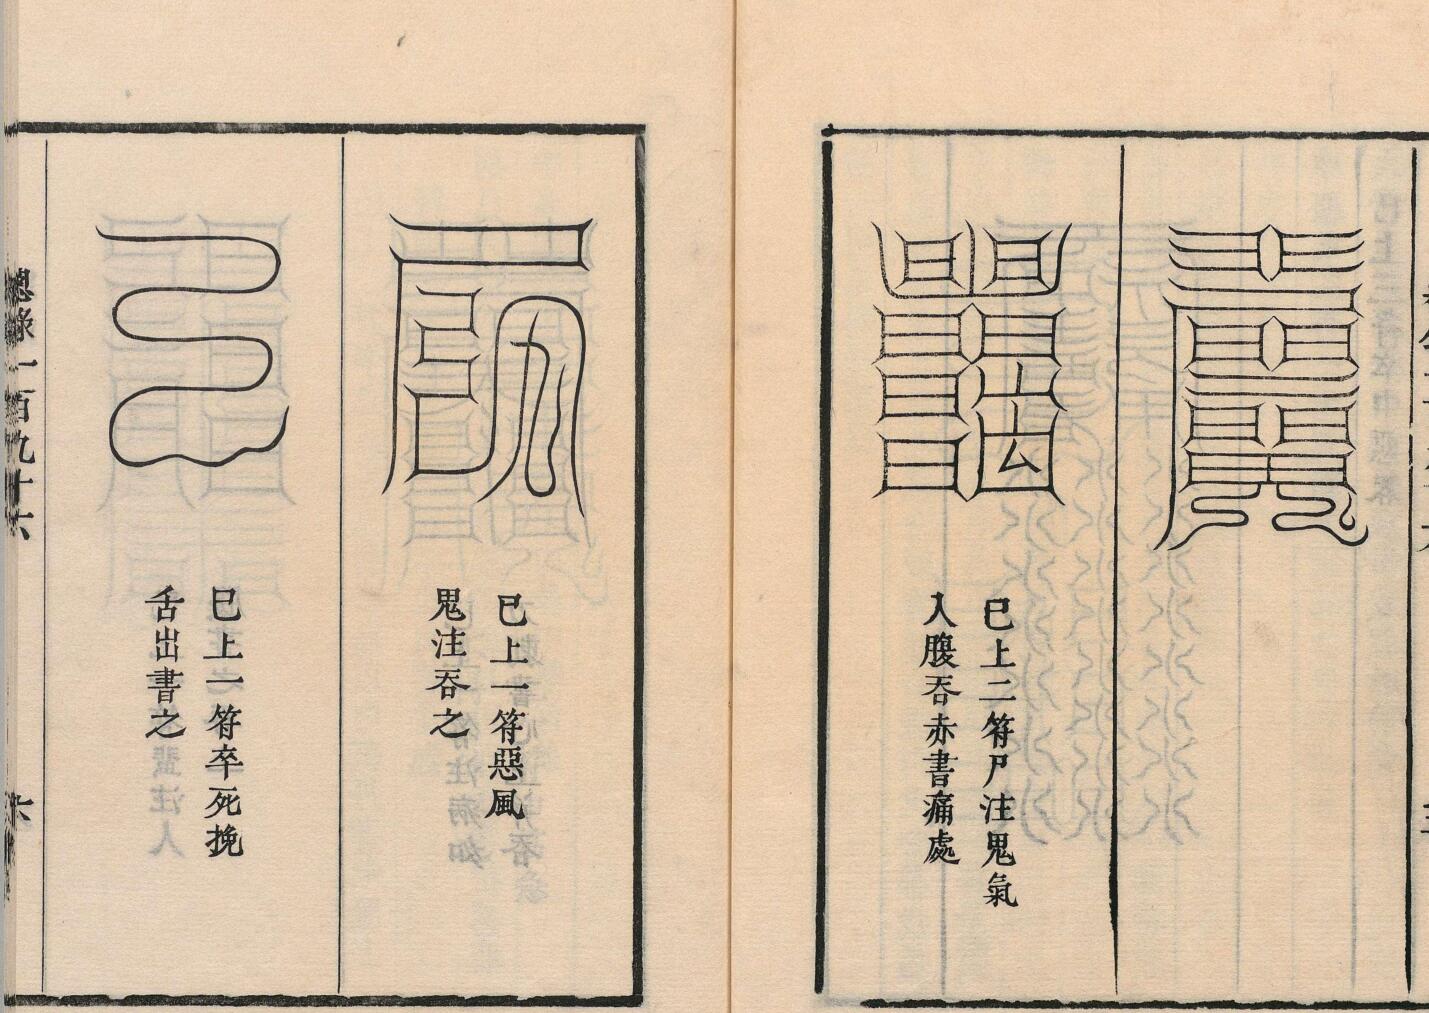 已上二符尸注鬼氣
入腹吞赤書痛處
已上一符惡風
鬼注吞之
已上一符卒死挽
舌出書之
總錄一百九十六